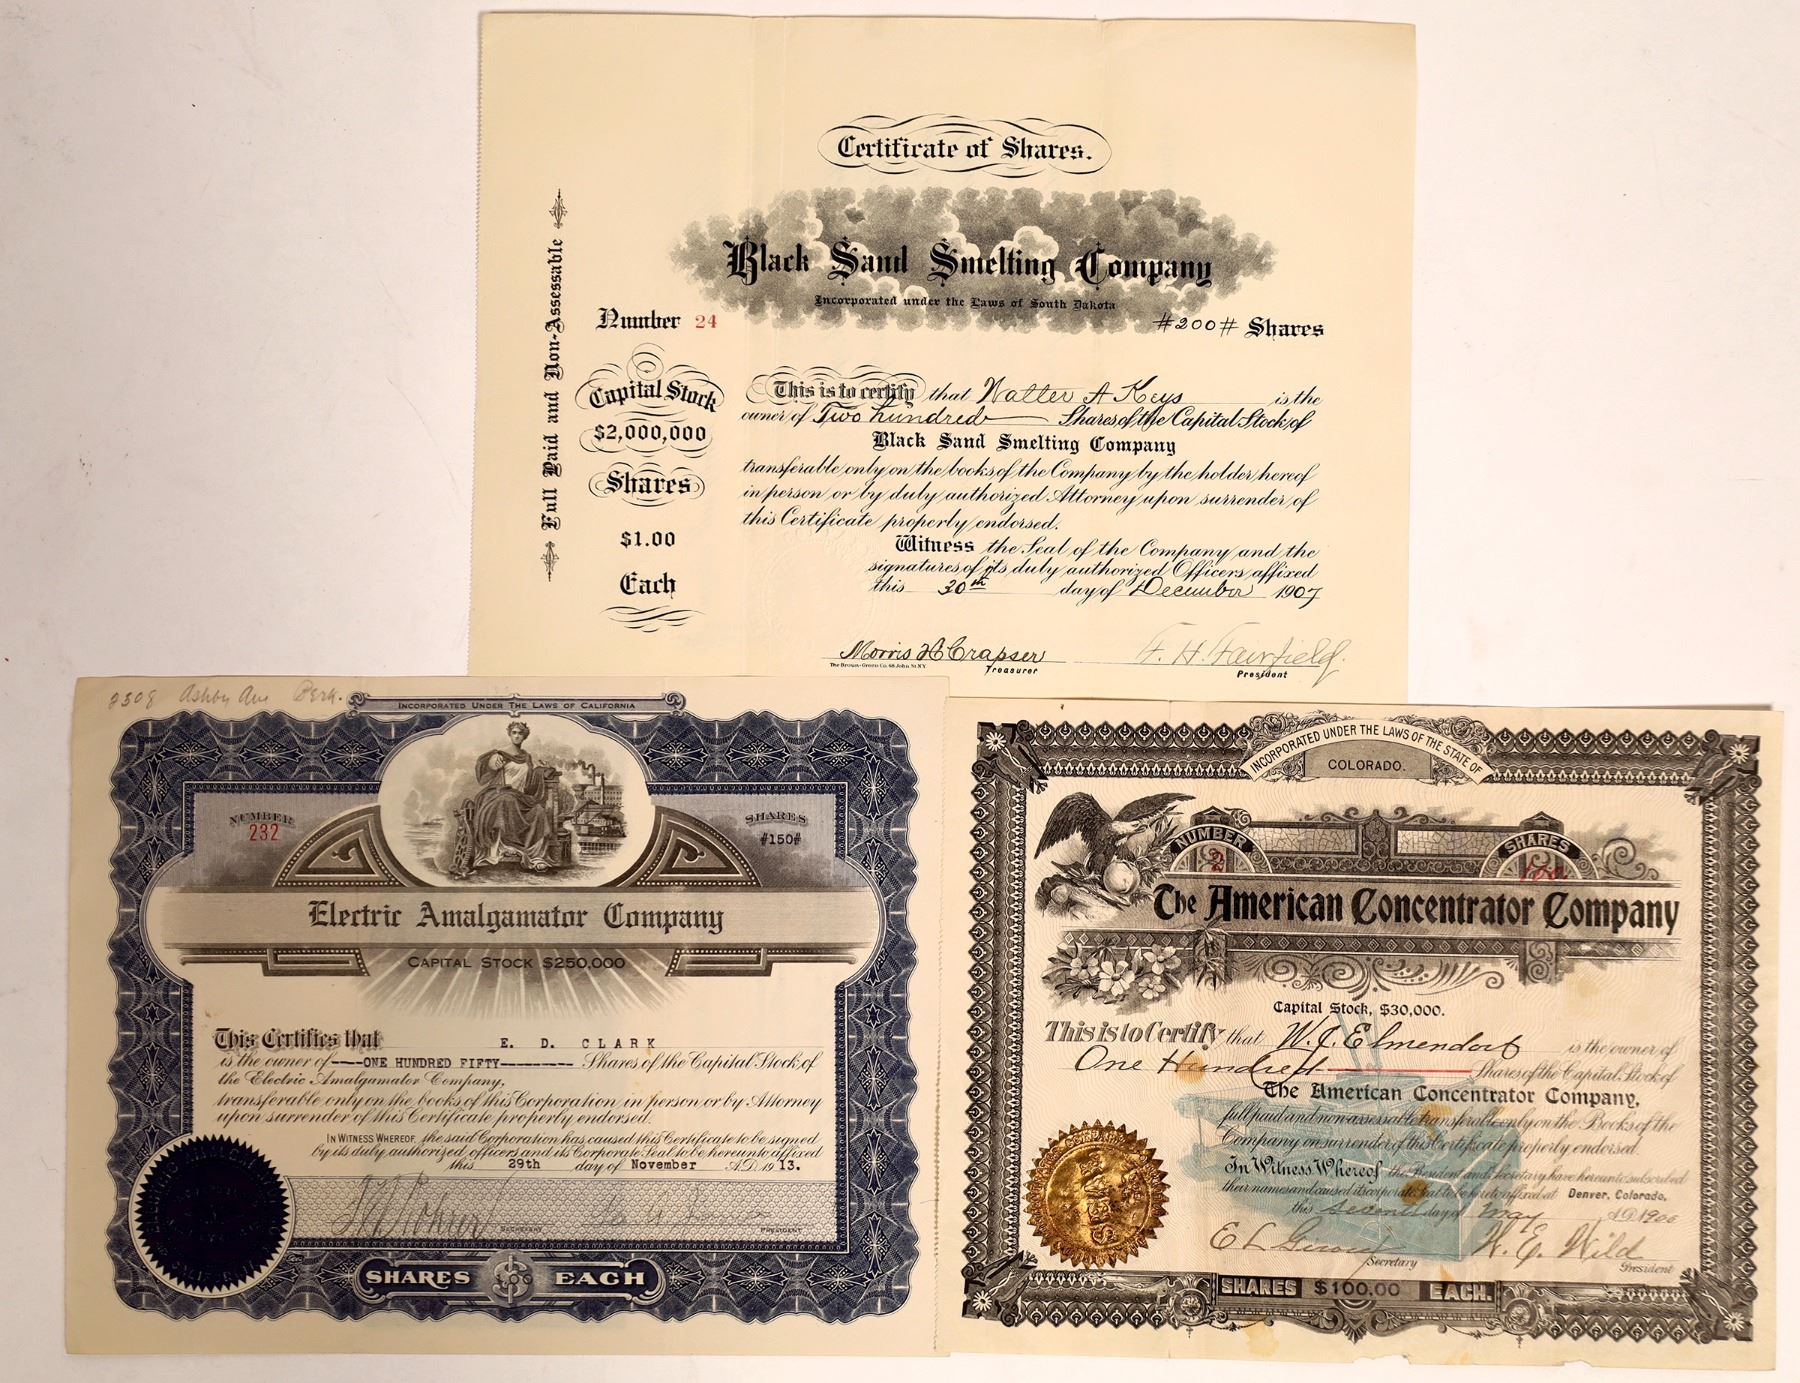 Certificate of Shares.
Black Sand Smelting Company
Incorporated under the Laws of South Dakota
Number 24
#200# Shares
Full Paid and Non-Assessable
Capital Stock
$2,000,000
Shares
$1.00
Each
This is to certify that Walter A Keys is the
owner of Two hundred Shares of the Capital Stock of
Black Sand Smelting Company
transferable only on the books of the Company by the holder hereof
in person or by duly authorized Attorney upon surrender of
this Certificate properly endorsed.
Witness the Seal of the Company and the
signatures of its duly authorized Officers affixed
this 30th day of December 1907
Morris H Crapser F. H. Fairfield
The Broun-Green Co. 48 John St. N.Y.
Treasurer
President
2508 Ashby Ave Berk.
Incorporated Under The Laws of California
NUMBER
232
SHARES
#150#
Electric Amalgamator Company
Capital Stock $250,000
This Certifies that E. D. CLARK
is the owner of ----ONE HUNDRED FIFTY-------- Shares of the Capital Stock of
the Electric Amalgamator Company,
transferable only on the books of this Corporation in person or by Attorney
upon surrender of this Certificate properly endorsed.
In Witness Whereof, the said Corporation has caused this Certificate to be signed
by its duly authorized officers and its Corporate Seal to be hereunto affixed
this 29th day of November A.D. 1913.
SECRETARY
PRESIDENT
SHARES $1.00 EACH
INCORPORATED UNDER THE LAWS OF THE STATE OF
COLORADO.
NUMBER
2
SHARES
The American Concentrator Company
Capital Stock, $30,000.
This is to Certify that W. J. Elmendorf is the owner of
One Hundred Shares of the Capital Stock of
The American Concentrator Company,
full paid and non assessable transferable only on the Books of the
Company on surrender of this Certificate properly endorsed.
In Witness Whereof the President and Secretary have hereunto subscribed
their names and caused its corporate seal to be hereto affixed at Denver, Colorado,
this seventh day of May A.D. 1900
E L W. E. Wild
Secretary
President
SEAL
SHARES $100.00 EACH.